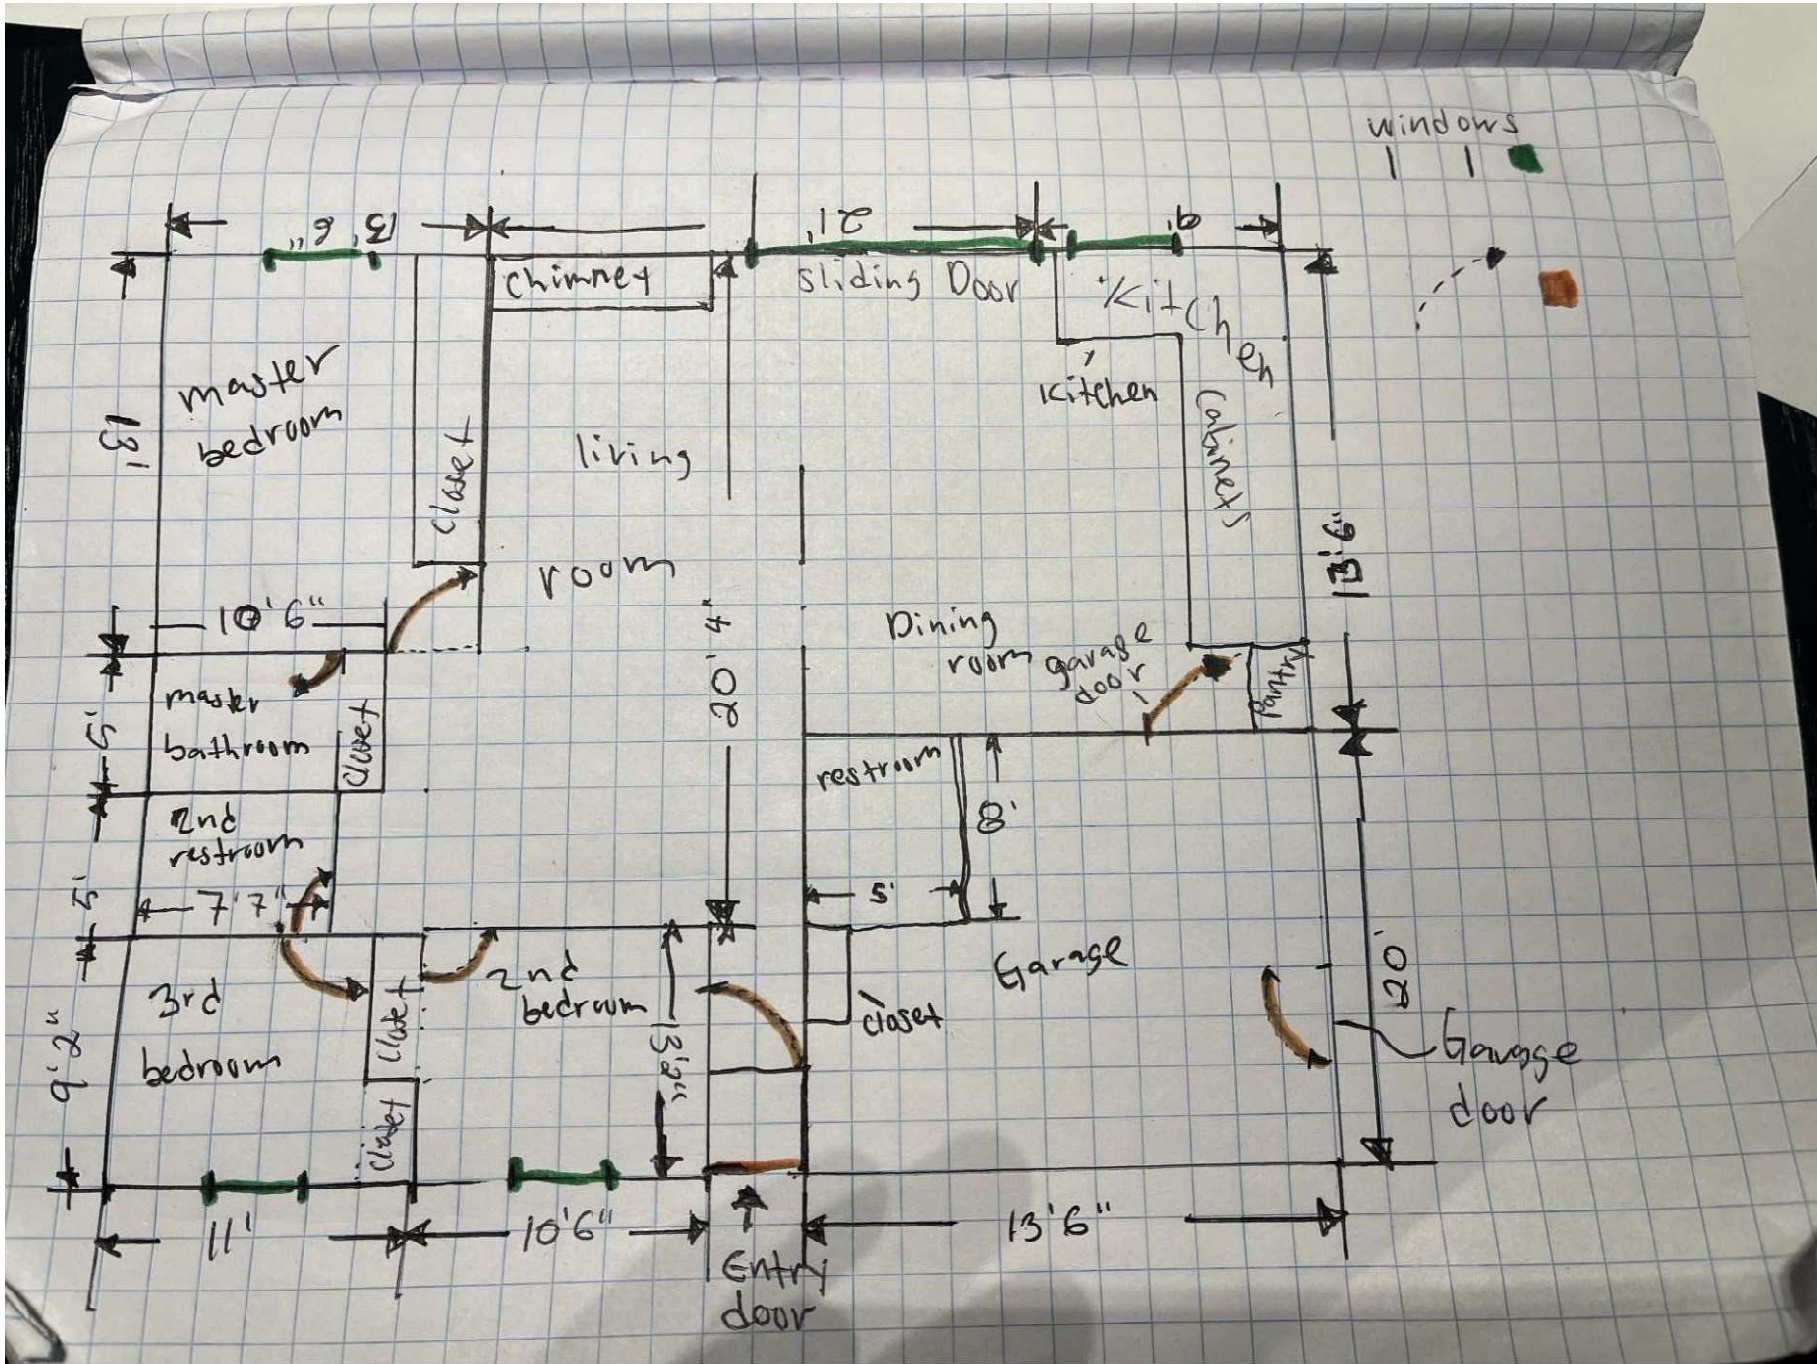 windows
13' 6"
21'
9'
chimney
sliding Door
Kitchen
Kitchen
Cabinets
master
bedroom
closet
living
room
13'
13'6"
10'6"
20'4"
Dining
room
garage
door
Pantry
master
bathroom
closet
5'
restroom
8'
5'
2nd
restroom
7'7"
5'
3rd
bedroom
closet
closet
9'2"
2nd
bedroom
13'2"
closet
Garage
20'
Garage
door
11'
10'6"
Entry
door
13'6"